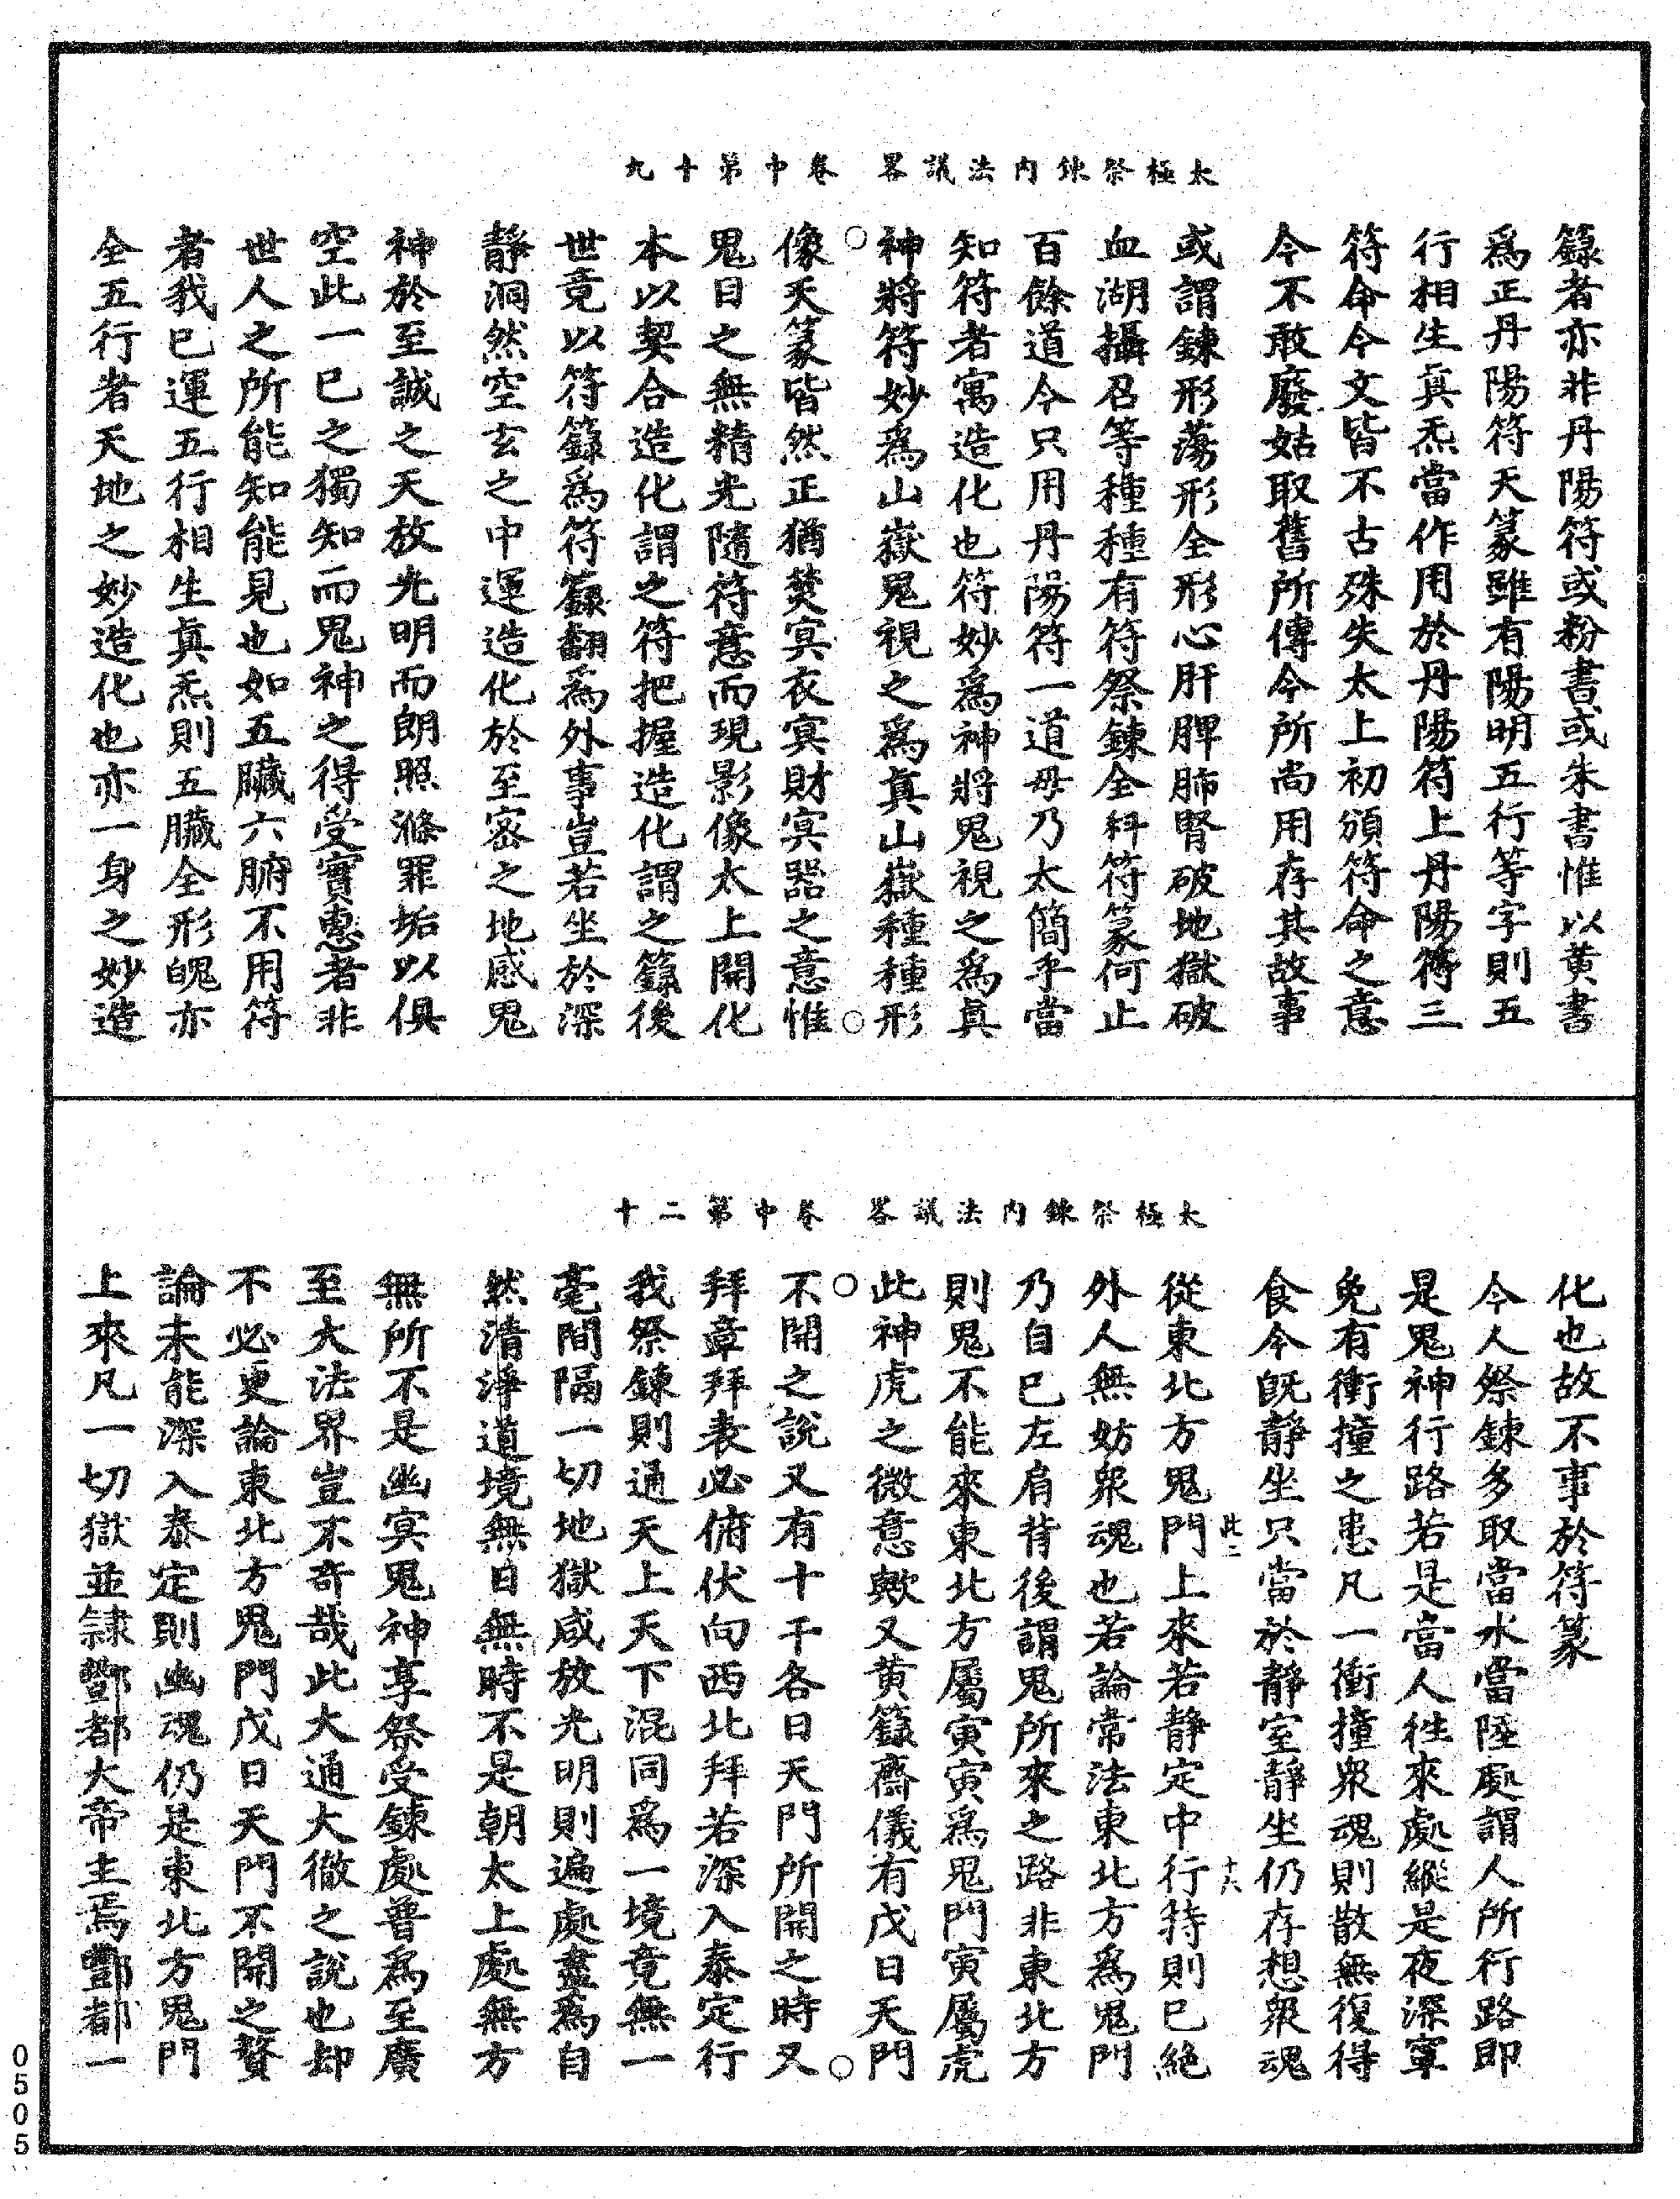 太極祭鍊內法議畧 卷中第十九
籙者亦非丹陽符或粉書或朱書惟以黄書
爲正丹陽符天篆雖有陽明五行等字則五
行相生眞炁當作用於丹陽符上丹陽符三
符命今文皆不古殊失太上初頒符命之意
今不敢廢姑取舊所傳今所尚用存其故事
或謂鍊形蕩形全形心肝脾肺腎破地獄破
血湖攝召等種種有符祭鍊全科符篆何止
百餘道今只用丹陽符一道毋乃太簡乎當
知符者寓造化也符妙爲神將鬼視之爲眞
神將符妙爲山嶽鬼視之爲眞山嶽種種形
像天篆皆然正猶焚冥衣冥財冥器之意惟
鬼目之無精光隨符意而現影像太上開化
本以契合造化謂之符把握造化謂之籙後
世竟以符籙爲符籙翻爲外事豈若坐於深
靜洞然空玄之中運造化於至密之地感鬼
神於至誠之天放光明而朗照滌罪垢以俱
空此一巳之獨知而鬼神之得受實惠者非
世人之所能知能見也如五臟六腑不用符
者我巳運五行相生眞炁則五臟全形魄亦
全五行者天地之妙造化也亦一身之妙造
太極祭鍊內法議畧 卷中第二十
化也故不事於符篆
今人祭鍊多取當水當陸處謂人所行路即
是鬼神行路若是當人徃來處縱是夜深寧
免有衝撞之患凡一衝撞衆魂則散無復得
食今旣靜坐只當於靜室靜坐仍存想衆魂
此二 十六
從東北方鬼門上來若静定中行持則巳絶
外人無妨衆魂也若論常法東北方爲鬼門
乃自巳左肩背後謂鬼所來之路非東北方
則鬼不能來東北方屬寅寅爲鬼門寅屬虎
此神虎之微意歟又黄籙齋儀有戊日天門
不開之說又有十干各日天門所開之時又
拜章拜表必俯伏向西北拜若深入泰定行
我祭鍊則通天上天下混同爲一境竟無一
毫間隔一切地獄咸放光明則遍處盡爲自
然清淨道境無日無時不是朝太上處無方
無所不是幽冥鬼神享祭受鍊處普爲至廣
至大法界豈不奇哉此大通大徹之說也却
不必更論東北方鬼門戊日天門不開之贅
論未能深入泰定則幽魂仍是東北方鬼門
上來凡一切獄並隸酆都大帝主焉酆都一
0505